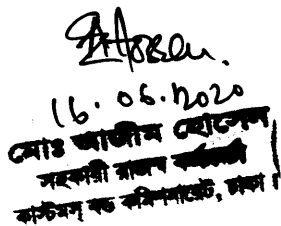 16.06.2020
মোঃ আজীম হোসেন
সহকারী রাজস্ব কর্মকর্তা
কাস্টমস্ বন্ড কমিশনারেট, ঢাকা।